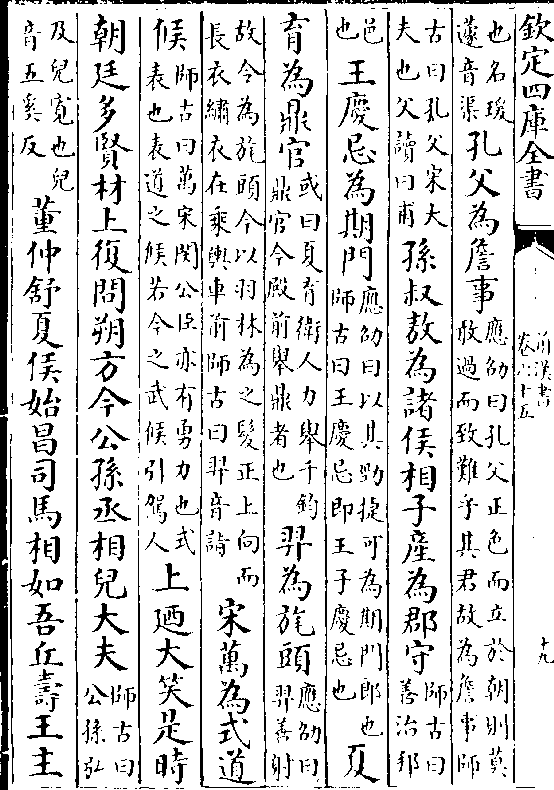 欽定四庫全書
前漢書
卷六十五
十九
也名瑗
蘧音渠
孔父為詹事
應劭曰孔父正色而立於朝則莫
敢過而致難乎其君故為詹事師
古曰孔父宋大
夫也父讀曰甫
孫叔敖為諸侯相子產為郡守
師古曰
善治邦
邑
也
王慶忌為期門
應劭曰以其勁捷可為期門郎也
師古曰王慶忌即王子慶忌也
夏
育為鼎官
或曰夏育衛人力舉千鈞
鼎官今殿前舉鼎者也
羿為旄頭
應劭曰
羿善射
故令為旄頭今以羽林為之髮正上向而
長衣繡衣在乘輿車前師古曰羿音詣
宋萬為式道
候
師古曰萬宋閔公臣亦有勇力也式
表也表道之候若今之武候引駕人
上廼大笑是時
朝廷多賢材上復問朔方今公孫丞相兒大夫
師古曰
公孫弘
及兒寬也兒
音五奚反
董仲舒夏侯始昌司馬相如吾丘壽王主